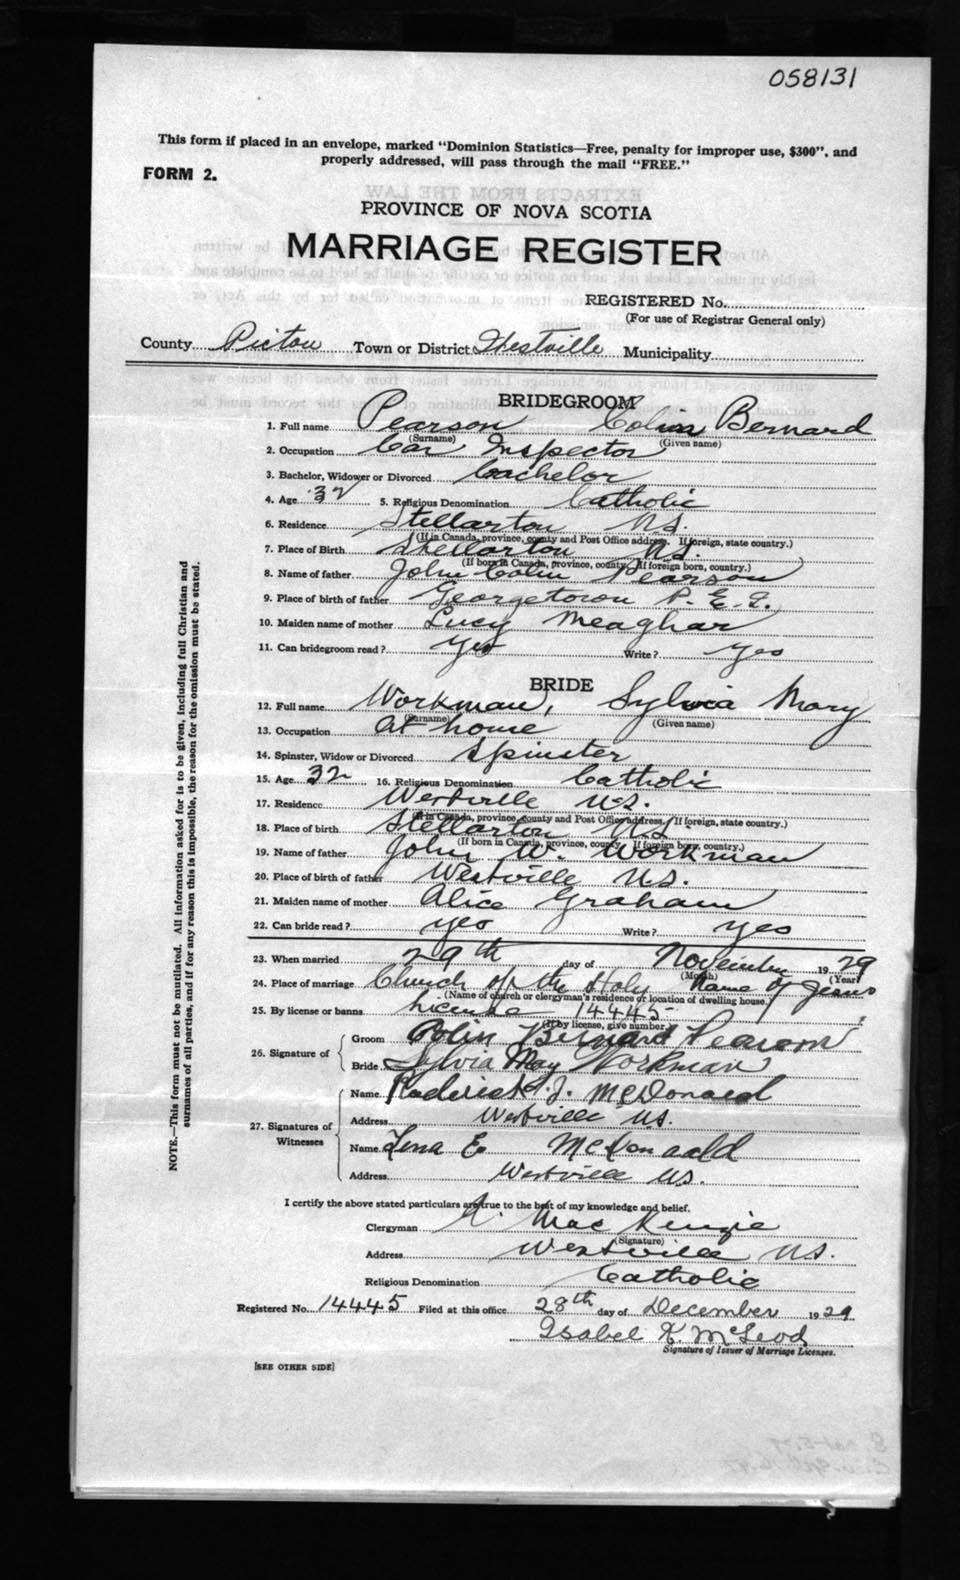 058131
This form if placed in an envelope, marked "Dominion Statistics—Free, penalty for improper use, $300", and
properly addressed, will pass through the mail "FREE."
FORM 2.
PROVINCE OF NOVA SCOTIA
MARRIAGE REGISTER
REGISTERED No.
(For use of Registrar General only)
County Pictou Town or District Westville Municipality
BRIDEGROOM
1. Full name Pearson Colin Bernard
(Surname) (Given name)
2. Occupation Car Inspector
3. Bachelor, Widower or Divorced Bachelor
4. Age 32 5. Religious Denomination Catholic
6. Residence Stellarton N.S.
(If in Canada, province, county and Post Office address. If foreign, state country.)
7. Place of Birth Stellarton N.S.
(If born in Canada, province, county. If foreign born, country.)
8. Name of father John Colin Pearson
9. Place of birth of father Georgetown P.E.I.
10. Maiden name of mother Lucy Meaghar
11. Can bridegroom read? Yes Write? Yes
BRIDE
12. Full name Workman, Sylvia Mary
(Surname) (Given name)
13. Occupation At home
14. Spinster, Widow or Divorced Spinster
15. Age 32 16. Religious Denomination Catholic
17. Residence Westville N.S.
(If in Canada, province, county and Post Office address. If foreign, state country.)
18. Place of birth Stellarton N.S.
(If born in Canada, province, county. If foreign born, country.)
19. Name of father John W. Workman
20. Place of birth of father Westville N.S.
21. Maiden name of mother Alice Graham
22. Can bride read? yes Write? yes
23. When married 29th day of November 1929
(Month) (Year)
24. Place of marriage Church of the Holy Name of Jesus
(Name of church or clergyman's residence or location of dwelling house.)
25. By license or banns license 14445
(If by license, give number.)
26. Signature of Groom Colin Bernard Pearson
Bride Sylvia May Workman
27. Signatures of Witnesses Name Roderick J. McDonald
Address Westville N.S.
Name Lena E McDonald
Address Westville N.S.
I certify the above stated particulars are true to the best of my knowledge and belief.
Clergyman A. MacKenzie
(Signature)
Address Westville N.S.
Religious Denomination Catholic
Registered No. 14445 Filed at this office 28th day of December 1929
Isabel K. McLeod
Signature of Issuer of Marriage Licenses.
[SEE OTHER SIDE]
NOTE.—This form must not be mutilated. All information asked for is to be given, including full Christian and
surnames of all parties, and if for any reason this is impossible, the reason for the omission must be stated.